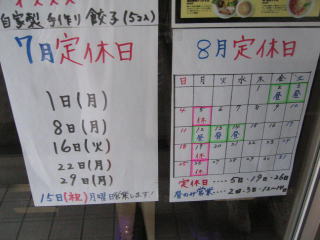 自家製 手作り 餃子(5コ入)
7月定休日
1日(月)
8日(月)
16日(火)
22日(月)
29日(月)
15日(祝)月曜日営業します!
8月定休日
日 月 火 水 木 金 土
1 2 3
昼 昼
4 5 6 7 8 9 10
休
11 12 13 14
昼 昼 昼
18 19
休
25 26
休
定休日・・・・5日・19日・26日
昼のみ営業・・・2日・3日・12〜14日